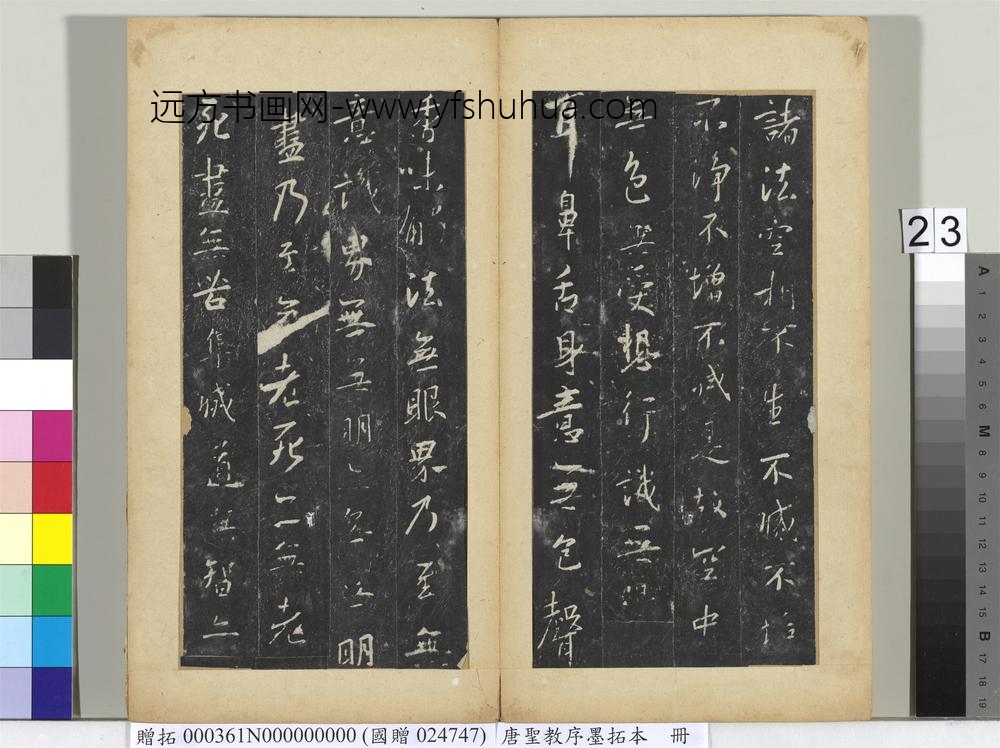 远方书画网-www.yfshuhua.com
諸法空相不生不滅不垢
不淨不增不減是故空中
無色無受想行識無眼
耳鼻舌身意無色聲
香味觸法無眼界乃至無
意識界無無明亦無無明
盡乃至無老死亦無老
死盡無苦集滅道無智亦
23
A 1 2 3 4 5 6 M 8 9 10 11 12 13 14 15 B 17 18 19
贈拓 000361N000000000 (國贈 024747) 唐聖教序墨拓本 冊